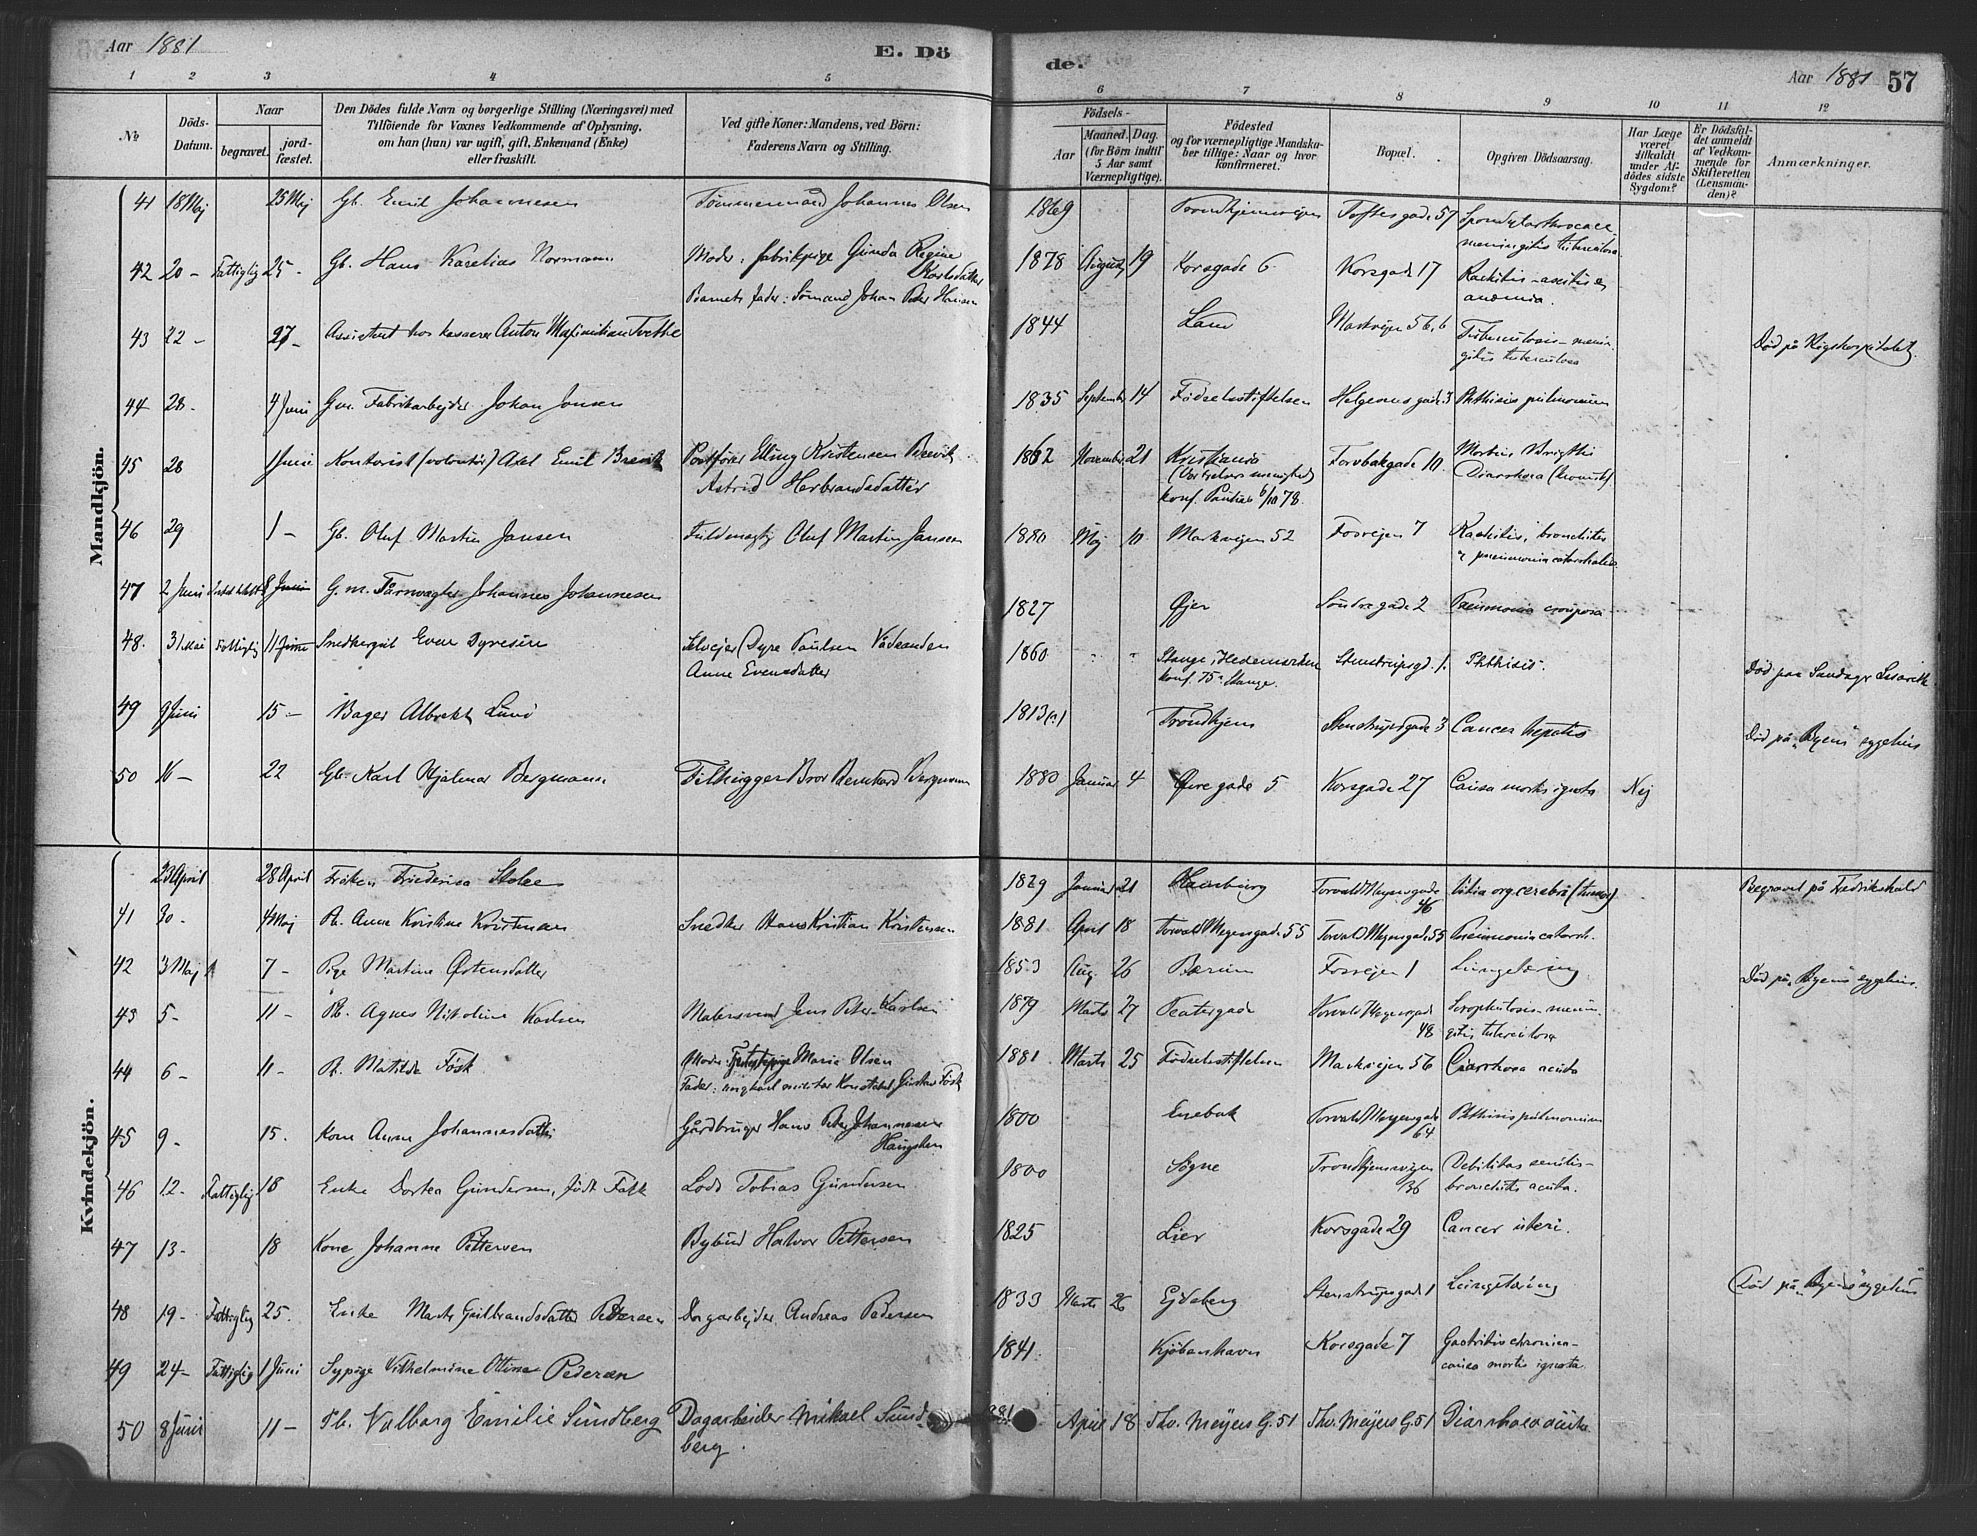 Aar 1881
E. Dö
de.
Aar 1881 57
1 2 3 4 5
6 7 8 9 10 11 12
No
Döds-
Datum.
Naar
begravet.
jord-
fæstet.
Den Dödes fulde Navn og borgerlige Stilling (Næringsvei) med
Tilföiende for Voxnes Vedkommende af Oplysning,
om han (hun) var ugift, gift, Enkemand (Enke)
eller fraskilt.
Ved gifte Koner: Mandens, ved Börn:
Faderens Navn og Stilling.
Födsels-
Aar
Maaned. Dag.
(for Börn indtil
5 Aar samt
Værnepligtige).
Födested
og for værnepligtige Mandska-
ber tillige: Naar og hvor
konfirmeret.
Bopæl.
Opgiven Dödsaarsag.
Har Læge
været
tilkaldt
under Af-
dödes sidste
Sygdom?
Er Dödsfal-
det anmeldt
af Vedkom-
mende for
Skifteretten
(Lensman-
den)?
Anmærkninger.
Mandkjön.
41 18 Maj 25 Maj Gb. Emil Johannesen Tømmermand Johannes Olsen 1869 Trondhjemsvejen Toftesgade 57 Spondylarthrocace,
meningitis tuberculosa
42 20 - Fattiglig 25 - Gb. Hans Karelius Normann Moder: fabrikpige Gunda Regine
Karlsdatter
Barnets fader: Sømand Johan Peter Hansen
1878 August 19 Korsgade 6 Korsgade 17 Rachitis - ascitis &
anæmia.
43 22 - 27 - Assistent hos kasserer Anton Maximilian Tvethe 1844 Land Markvejen 56, b Tuberculosis - menin-
gitis tuberculosa Død på Rigshospitalet.
44 28 - 4 Juni G.m. Fabrikarbejder Johan Jonsen 1835 September 14 Fødselsstiftelsen Helgesensgade 3 Phthisis pulmonum
45 28 1 Juni Kontorist (volontør) Axel Emil Brevik Postfører Elling Kristensen Brevik
Astrid Herbrandsdatter
1862 November 21 Kristiania
(Vor Frelsers menighed)
konf. Paulus 6/10 78.
Torvbakgade 10. Morbus Brightii
Diarrhoea (kronisk)
46 29 1 - Gb. Oluf Martin Jansen Fuldmægtig Oluf Martin Jansen 1880 Maj 10 Markvejen 52 Fosvejen 7 Rachitis, bronchitis
& pneumonia catarrhalis
47 2 Juni 8 Juni G.m. Tårnvægter Johannes Johannesen 1827 Øjer Søndregade 2 Pneumonia crouposa
48. 31 Mai Fattiglig 11 Juni Snedkersvd Even Dyresen Selvejer Dyre Paulsen
Anne Evensdatter
1860 " " Stange, Hedemarken
konf. 75 Stange.
Stenstrupsgd. 1. Phthisis. Død paa Lazareth
49 9 Juni 15 - Bager Albrekt Lund 1813(?) Trondhjem Stenstrupsgade 3 Cancer hepatis Død på "Byens" sygehus
50 16 - 22 Gb. Karl Hjalmar Bergmann Tilhugger Bror Bernhard Bergmann 1880 Januar 4 Øvregade 5 Korsgade 27 Causa mortis ignota Nej
Kvindekjön.
23 April 28 April Frøken Friederica Stolze 1829 Januar 21 Hamburg Torvald Meyersgade
46 Vitia org. cerebri (tumor) Begravet på Fredrikshald
41 30 - 4 Maj Pb. Anna Kristine Kristensen Snedker Hans Kristian Kristensen 1881 April 18 Torvald Meyersgade 55 Torvald Meyersgade 55 Pneumonia catarrh.
42 3 Maj 7 - Pige Martine Østensdatter 1853 Aug. 26 Bærum Fosvejen 1 Lungetæring Død på "Byens" sygehus.
43 5 - 11 - Pb. Agnes Nikoline Karlsen Malersvend Jens Peter Karlsen 1879 Marts 27 Teatergade Torvald Meyersgade
48 Scrophulosis - menin-
gitis tuberculosa
44 6 - 11 - Pb. Matilde Fósk Moder: Maria Olsen
Fader: ungkarl militær Konstabel Gustav Fósk
1881 Marts 25 Fødselsstiftelsen Markvejen 56 Diarrhoea acuta
45 9 - 15. Kone Anne Johannesdatter Gårdbruger Hans Peter Johannesen
Haugsten
1800 Enebak Torvald Meyersgade
64 Phthisis pulmonum
46 12 - Fattiglig 18 Enke Dortea Gundersen, født Falk Lods Tobias Gundersen 1800 Søgne Trondhjemsvejen
36 Debilitas senilis -
bronchitis acuta.
47 13 - 18 Kone Johanne Pettersen Bybud Halvor Pettersen 1825 Lier Korsgade 29 Cancer uteri.
48 19 - Fattiglig 25. Enke Marte Gulbrandsdatter Pettersen Dagarbejder Andreas Pedersen 1833 Marts 26 Ejdsberg Stenstrupsgade 1 Lungetæring Død på "Byens" sygehus
49 24 - Fattiglig 1 Juni Sypige Vilhelmine Ottine Pedersen 1841. Kjøbenhavn Korsgade 7 Gastritis chronica -
causa mortis ignota.
50 8 Juni 11 - Pb. Valborg Emilie Sundberg Dagarbeider Mikael Sund-
berg.
881 April 18 Thv. Meyers G. 51 Thv. Meyers G. 51 Diarrhoea acuta